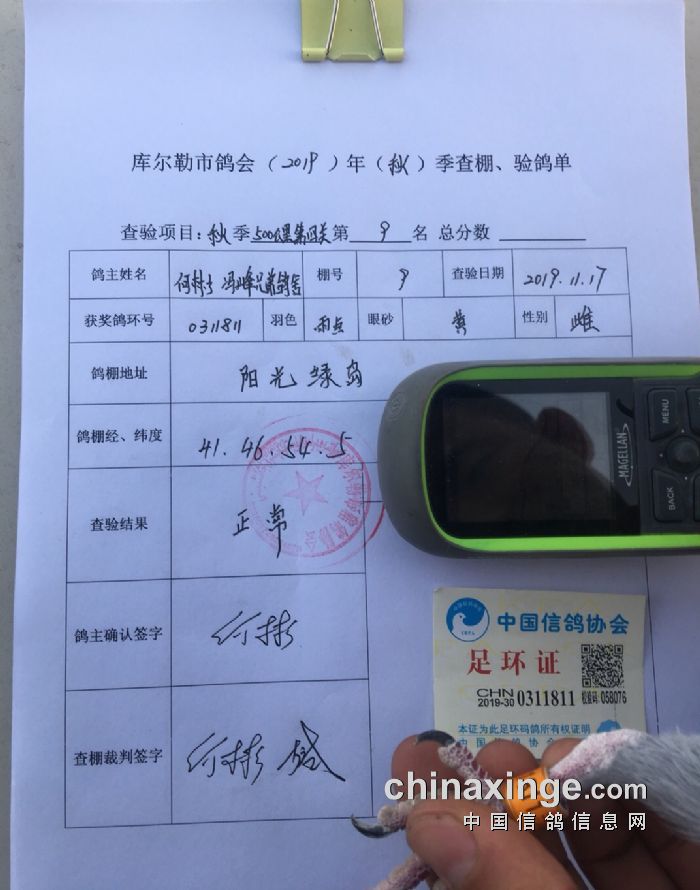 库尔勒市鸽会（2019）年（秋）季查棚、验鸽单
查验项目：秋季500公里第四关第 9 名 总分数
鸽主姓名 何彬 棚号 9 查验日期 2019.11.17
获奖鸽环号 0311811 羽色 雨点 眼砂 黄 性别 雌
鸽棚地址 阳光绿岛
鸽棚经、纬度 41.46.54.5
查验结果 正常
鸽主确认签字 何彬
查棚裁判签字 何彬
MAGELLAN
MENU
BACK
中国信鸽协会
足环证
CHN
2019-30 0311811 校验码:058076
本证为此足环码鸽所有权证明
中国信鸽协会
chinaxinge.com
中国信鸽信息网